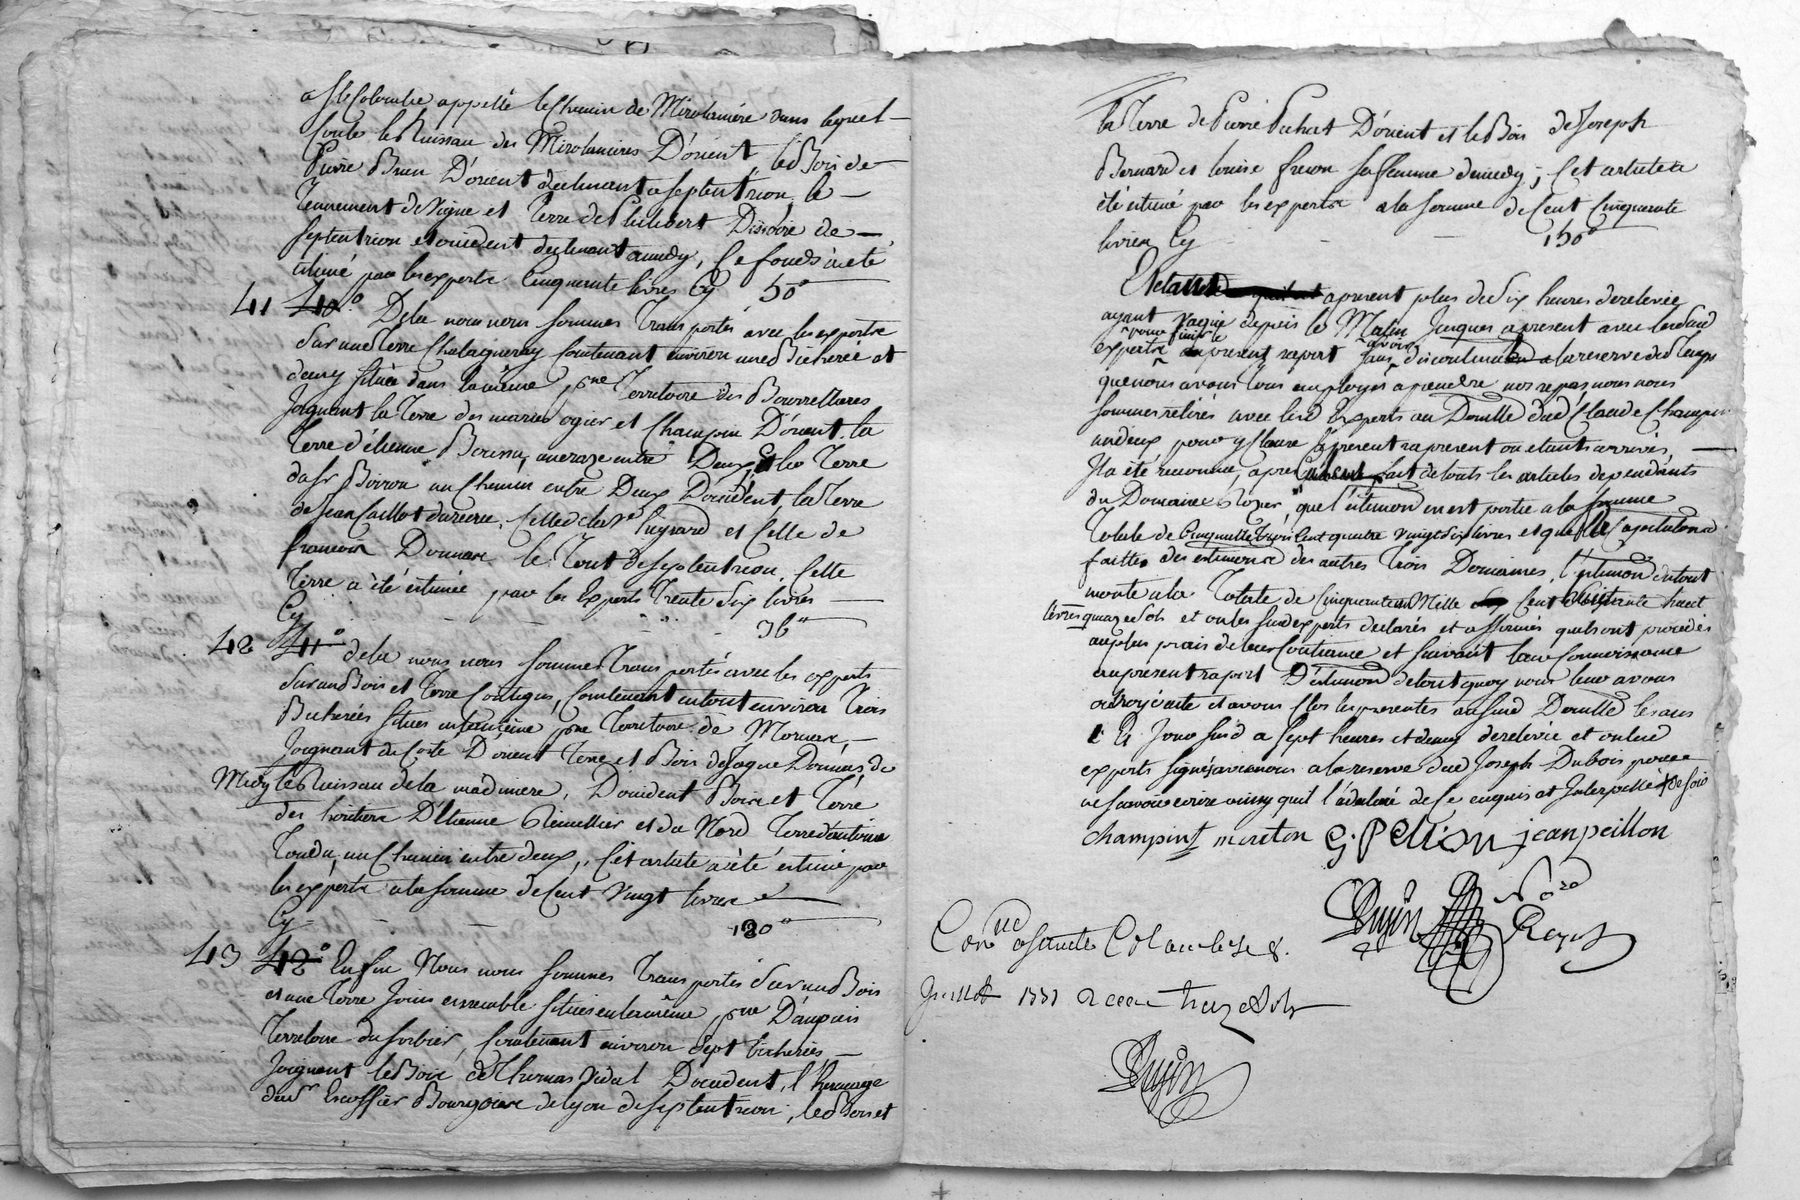 a Ste Colombe appellé le Chemin de Mirolaniere dans lequel
Coule le Ruisseau des Mirolanieres D'orient, le Bois de
Pierre Brun D'orient declinant a septentrion, le
Tennement de vigne et Terre de Philibert Dissoire de
septentrion et occident declinant a midy, Ce fonds a été
estimé par les experts Cinquante livres Cy 50"
41 40° Dela nous nous sommes Transportés avec les experts
Sur une Terre Chataigneray Contenant environ une Bicherée et
demy située dans la même psse Territoire des Bourrellares
Joignant la Terre des mariés ogier et Champin D'orient, la
Terre d'étienne une raze entre Deux, la Terre
du Sr Boiron un Chemin entre Deux D'occident, la Terre
de Jean Caillot Celle de Peyrard et Celle de
francois Donnare le Tout de septentrion, Cette
Terre a été estimée par les Experts Trente Six livres
Cy 36"
42 41° dela nous nous sommes Transportés avec les experts
Sur un Bois et Terre Contigus, Contenant en tout environ Trois
Bicherées situes en la même psse Territoire de Mornare,
Joignant du Coste D'orient Terre et Bois de Jaque Donnas, de
Midy le Ruisseau de la madiniere, D'occident Bois et Terre
des heritiers D'étienne Remillier et du Nord Terre d'antoine
Tondu un Chemin entre deux, Cet article a été estimé par
les experts a la somme de Cent vingt livres
Cy 120"
43 42° Enfin Nous nous sommes Transportés Sur un Bois
et une Terre Joins ensemble situes en la même psse D'ampuis
Territoire du sorbier, Contenant environ Sept bicherées,
Joignant le Bois de Thomas Vidal D'occident, l'hermage
du Sr Escoffier Bourgeois de lyon de septentrion, le Bois et
la Terre de Pierre Pichat D'orient et le Bois de Joseph
Bernard et louise freron sa femme de midy, Cet article a
été estimé par les experts a la somme de Cent Cinquante
livres Cy 150"
Et etant a present plus de Six heures de relevée
ayant vaqué depuis le Matin Jusques a present avec lesd
experts pour finir le present raport sans avoir discontinué a la reserve du Temps
que nous avons Tous employés a prendre nos repas nous nous
sommes retirés avec lesd Experts au Domille dud Claude Champin
pour y Clore le present raport ou etants arrivés
Il a été reconnu, apres Calcul fait de touts les articles dependants
du Domaine Rozier, que l'estimon en est portée a la somme
Totale de quatre vingt Six livres et que la Capitulaon
faitte des estimons des autres Trois Domaines, l'estimon du tout
monte a la Totale de Cinquante un Mille Cent Cinquante huit
livres quinze Sols et ont les susd experts declarés et affirmés qu'ils ont procedés
au plus prais de leur Conscience et suivant leur Connoissance
au present raport D'estimon de tout quoy nous leur avons
octroyé acte et avons Clos les presentes au susd Domille les ans
Et Jour susd a sept heures et demy de relevée et ont lesd
experts signés avec nous a la reserve dud Joseph Dubois pour
ne savoir ecrire ainsy qu'il l'a declaré de Ce enquis et Interpellé de soix
champin moreton G. Pellion jean peillon
Dujin Nore Royal
Conlé a Sainte Colombe le 8.
Juillet 1781 Receu treze Sols
Dujin